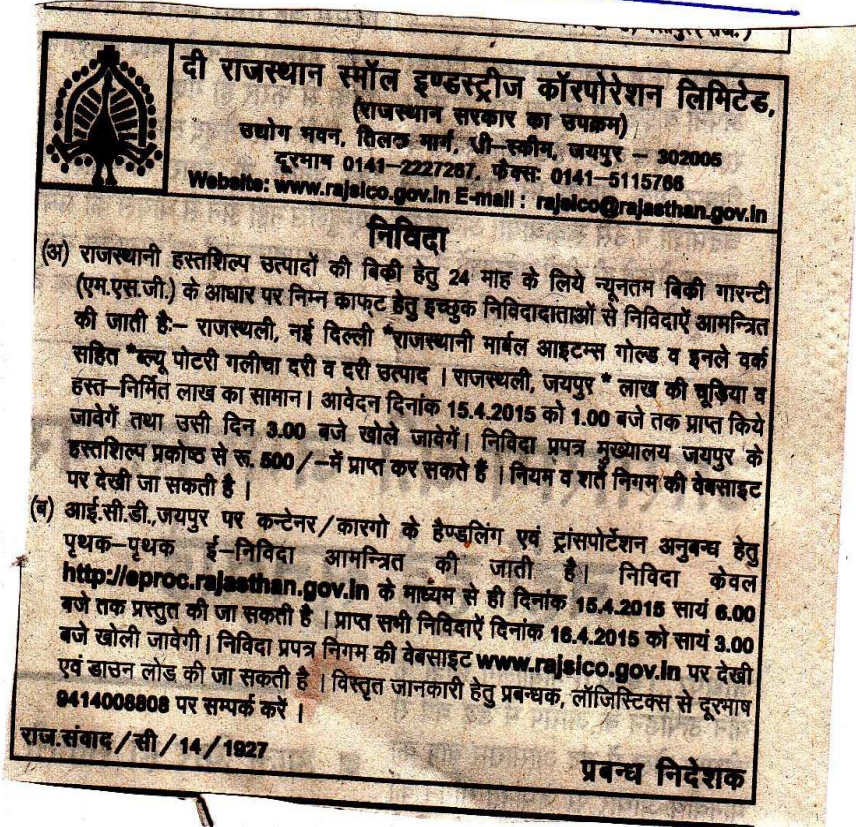 दी राजस्थान स्मॉल इण्डस्ट्रीज कॉरपोरेशन लिमिटेड,
(राजस्थान सरकार का उपक्रम)
उद्योग भवन, तिलक मार्ग, सी-स्कीम, जयपुर – 302005
दूरभाष 0141–2227267, फैक्सः 0141–5115766
Website: www.rajsico.gov.in E-mail : rajsico@rajasthan.gov.in
निविदा
(अ) राजस्थानी हस्तशिल्प उत्पादों की बिक्री हेतु 24 माह के लिये न्यूनतम बिक्री गारन्टी
(एम.एस.जी.) के आधार पर निम्न काफ्ट हेतु इच्छुक निविदादाताओं से निविदाऐं आमन्त्रित
की जाती हैः– राजस्थली, नई दिल्ली *राजस्थानी मार्बल आइटम्स गोल्ड व इनले वर्क
सहित *ब्ल्यू पोटरी गलीचा दरी व दरी उत्पाद । राजस्थली, जयपुर * लाख की चूड़िया व
हस्त–निर्मित लाख का सामान। आवेदन दिनांक 15.4.2015 को 1.00 बजे तक प्राप्त किये
जावेगें तथा उसी दिन 3.00 बजे खोले जावेगें। निविदा प्रपत्र मुख्यालय जयपुर के
हस्तशिल्प प्रकोष्ठ से रू. 500/–में प्राप्त कर सकते हैं । नियम व शर्तें निगम की वेबसाइट
पर देखी जा सकती है ।
(ब) आई.सी.डी.,जयपुर पर कन्टेनर/कारगो के हैण्डलिंग एवं ट्रांसपोर्टेशन अनुबन्ध हेतु
पृथक–पृथक ई–निविदा आमन्त्रित की जाती है। निविदा केवल
http://eproc.rajasthan.gov.in के माध्यम से ही दिनांक 15.4.2015 सायं 6.00
बजे तक प्रस्तुत की जा सकती है । प्राप्त सभी निविदाऐं दिनांक 16.4.2015 को सायं 3.00
बजे खोली जावेगी। निविदा प्रपत्र निगम की वेबसाइट www.rajsico.gov.in पर देखी
एवं डाउन लोड की जा सकती है । विस्तृत जानकारी हेतु प्रबन्धक, लॉजिस्टिक्स से दूरभाष
9414008808 पर सम्पर्क करें ।
राज.संवाद/सी/14/1927
प्रबन्ध निदेशक